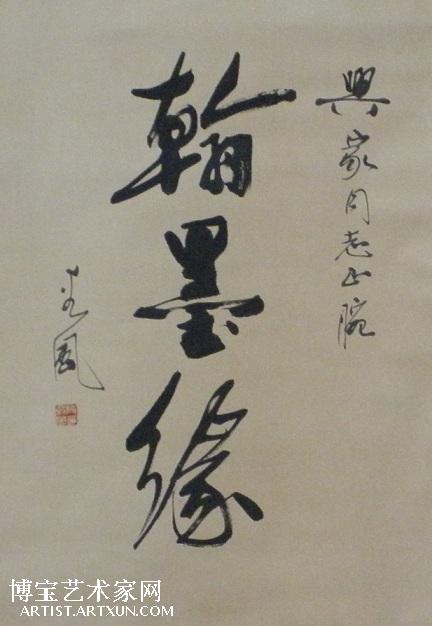 興家同志正腕
翰墨緣
博宝艺术家网
ARTIST.ARTXUN.COM